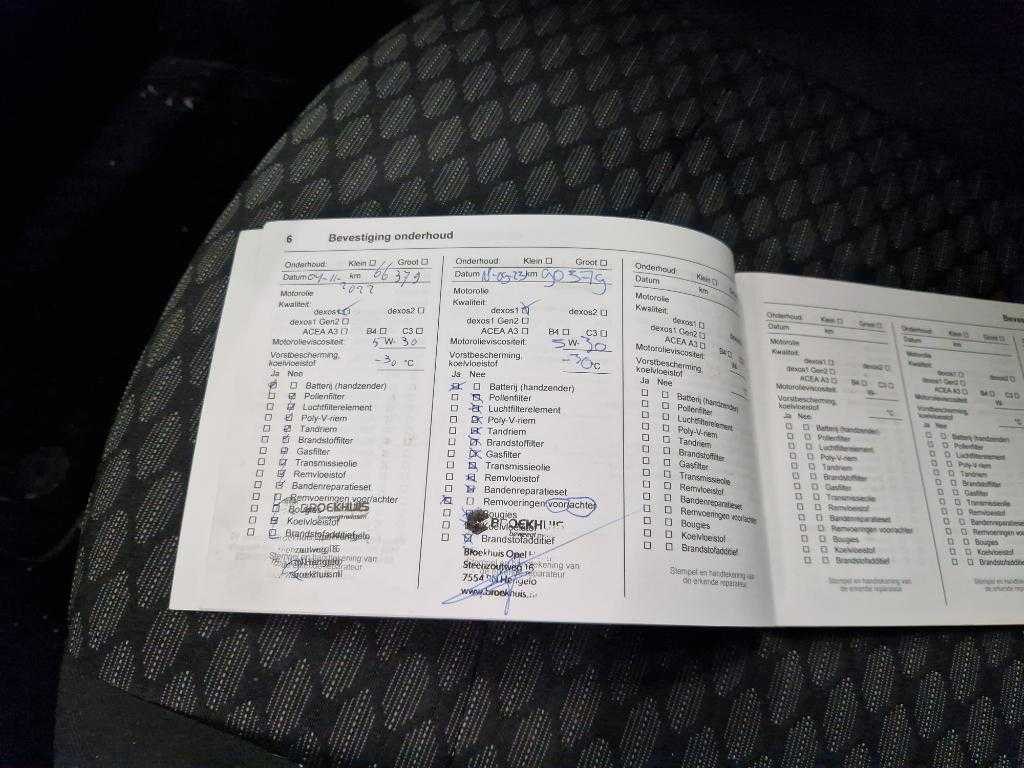 6 Bevestiging onderhoud
Onderhoud: Klein ☐ Groot ☐
Datum 04-11-2022 km 66379
Motorolie
Kwaliteit:
dexos1 ☑ dexos2 ☐
dexos1 Gen2 ☐
ACEA A3 ☐ B4 ☐ C3 ☐
Motorolieviscositeit: 5 W- 30
Vorstbescherming,
koelvloeistof -30 °C
Ja Nee
Batterij (handzender)
Pollenfilter
Luchtfilterelement
Poly-V-riem
Tandriem
Brandstoffilter
Gasfilter
Transmissieolie
Remvloeistof
Bandenreparatieset
Remvoeringen voor/achter
BROEKHUIS
Bougies
Koelvloeistof
Brandstofadditief
Stempel en handtekening van
Hengelo
broekhuis.nl
Onderhoud: Klein ☐ Groot ☐
Datum km 90379
Motorolie
Kwaliteit:
dexos1 ☑ dexos2 ☐
dexos1 Gen2 ☐
ACEA A3 ☐ B4 ☐ C3 ☐
Motorolieviscositeit: 5 W- 30
Vorstbescherming,
koelvloeistof -30 °C
Ja Nee
Batterij (handzender)
Pollenfilter
Luchtfilterelement
Poly-V-riem
Tandriem
Brandstoffilter
Gasfilter
Transmissieolie
Remvloeistof
Bandenreparatieset
Remvoeringen voor/achter
Bougies
BROEKHUIS
Koelvloeistof
Brandstofadditief
Broekhuis Opel
Steenzoutweg 16
7554 Hengelo
www.broekhuis.
Onderhoud: Klein ☐
Datum km
Motorolie
Kwaliteit:
dexos1 ☐
dexos1 Gen2 ☐
ACEA A3 ☐ B4
Motorolieviscositeit:
Vorstbescherming,
koelvloeistof
Ja Nee
Batterij (handzender)
Pollenfilter
Luchtfilterelement
Poly-V-riem
Tandriem
Brandstoffilter
Gasfilter
Transmissieolie
Remvloeistof
Bandenreparatieset
Remvoeringen voor/achter
Bougies
Koelvloeistof
Brandstofadditief
Stempel en handtekening van
de erkende reparateur
Onderhoud: Klein ☐ Groot ☐
Datum km
Motorolie
Kwaliteit:
dexos1 ☐ dexos2 ☐
dexos1 Gen2 ☐
ACEA A3 ☐ B4 ☐ C3 ☐
Motorolieviscositeit: W-
Vorstbescherming,
koelvloeistof °C
Ja Nee
Batterij (handzender)
Pollenfilter
Luchtfilterelement
Poly-V-riem
Tandriem
Brandstoffilter
Gasfilter
Transmissieolie
Remvloeistof
Bandenreparatieset
Remvoeringen voor/achter
Bougies
Koelvloeistof
Brandstofadditief
Stempel en handtekening van
de erkende reparateur
Onderhoud: Klein ☐ Groot ☐
Datum km
Motorolie
Kwaliteit:
dexos1 ☐ dexos2 ☐
dexos1 Gen2 ☐
ACEA A3 ☐ B4 ☐ C3 ☐
Motorolieviscositeit: W-
Vorstbescherming,
koelvloeistof
Ja Nee
Batterij (handzender)
Pollenfilter
Luchtfilterelement
Poly-V-riem
Tandriem
Brandstoffilter
Gasfilter
Transmissieolie
Remvloeistof
Bougies
Koelvloeistof
Brandstofadditief